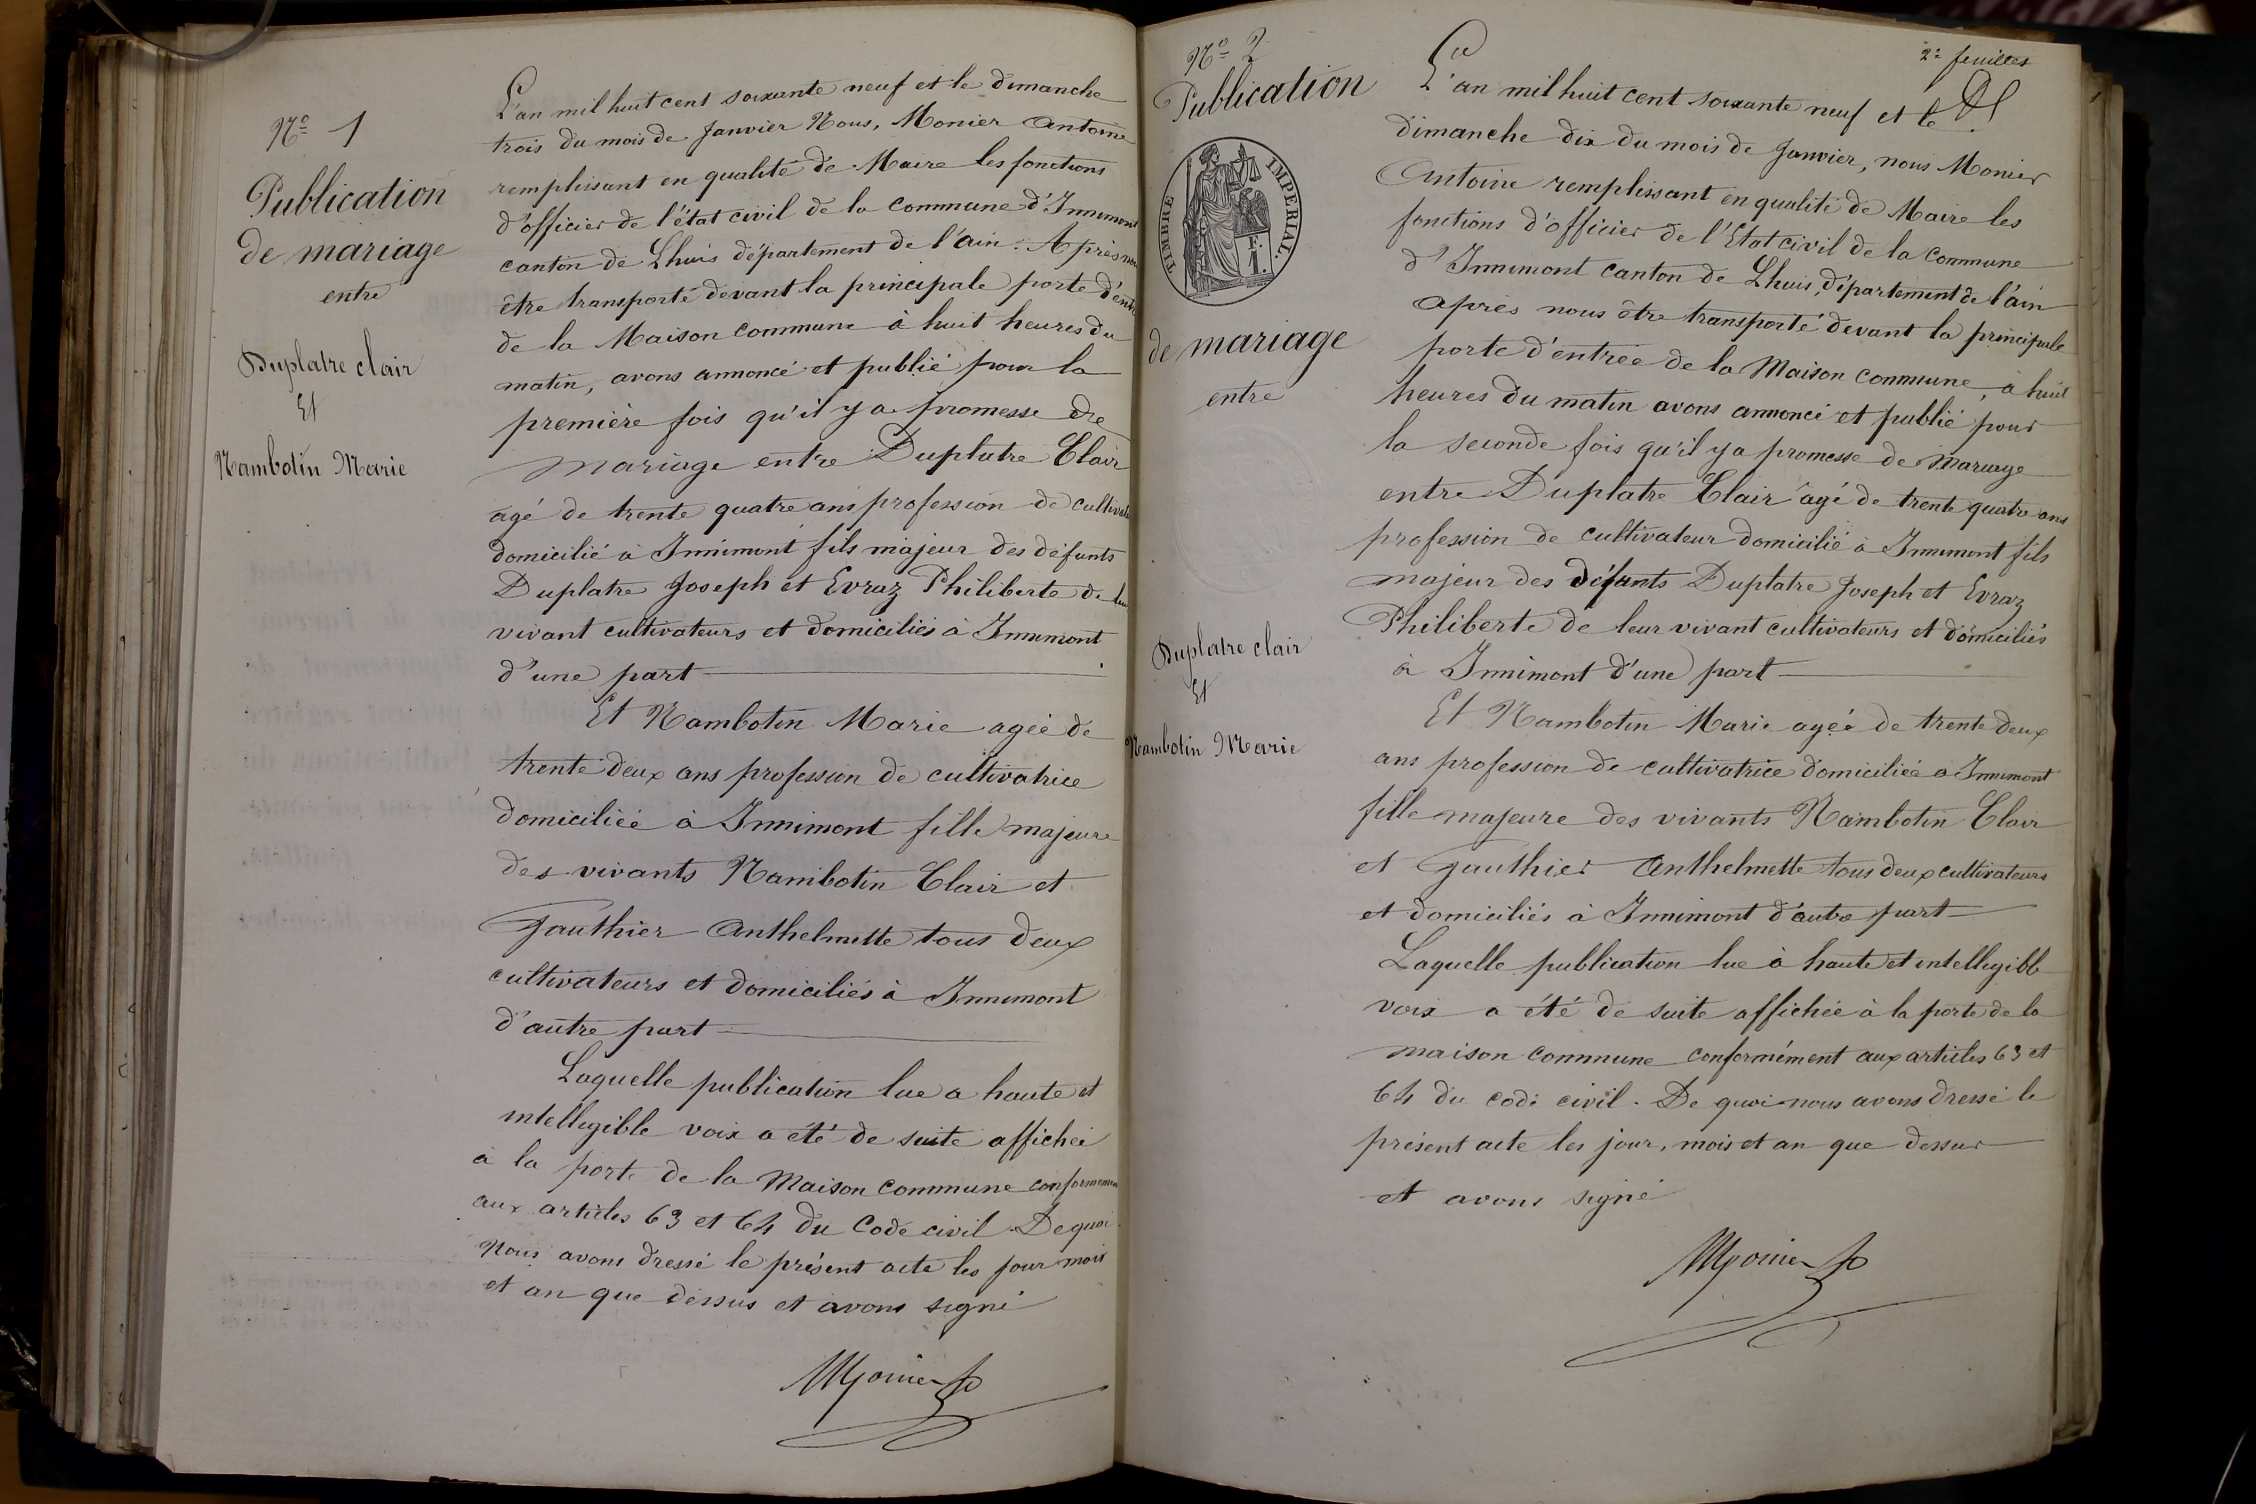 Nº 1
Publication
de mariage
entre
Duplatre clair
Et
Nambotin Marie
L'an mil huit cent soixante neuf et le dimanche
trois du mois de Janvier Nous, Monier Antoine
remplissant en qualité de Maire les fonctions
d'officier de l'état civil de la commune d'Innimont
canton de Lhuis département de l'ain. Après nous
être transporté devant la principale porte d'entrée
de la Maison commune à huit heures du
matin, avons annoncé et publié pour la
première fois qu'il y a promesse de
mariage entre Duplatre Clair
agé de trente quatre ans profession de cultivateur
domicilié à Innimont fils majeur des défunts
Duplatre Joseph et Evraz Philiberte de leur
vivant cultivateurs et domiciliés à Innimont
d'une part
Et Nambotin Marie agée de
trente deux ans profession de cultivatrice
domiciliée à Innimont fille majeure
des vivants Nambotin Clair et
Gauthier Anthelmette tous deux
cultivateurs et domiciliés à Innimont
d'autre part
Laquelle publication lue a haute et
intellegible voix a été de suite affichée
à la porte de la Maison commune conformement
aux articles 63 et 64 du Code civil. De quoi
Nous avons dressé le présent acte les jour mois
et an que dessus et avons signé
Monier
Nº 2
Publication
TIMBRE IMPERIAL.
F.
1.
de mariage
entre
Duplatre clair
Et
Nambotin Marie
2e feuillet
L'an mil huit cent soixante neuf et le
dimanche dix du mois de Janvier, nous Monier
Antoine remplissant en qualité de Maire les
fonctions d'officier de l'Etat civil de la commune
d'Innimont canton de Lhuis, département de l'ain
après nous être transporté devant la principale
porte d'entrée de la Maison commune, à huit
heures du matin avons annoncé et publié pour
la seconde fois qu'il y a promesse de mariage
entre Duplatre Clair agé de trente quatre ans
profession de cultivateur domicilié à Innimont fils
majeur des défunts Duplatre Joseph et Evraz
Philiberte de leur vivant cultivateurs et domiciliés
à Innimont d'une part
Et Nambotin Marie agée de trente deux
ans profession de cultivatrice domiciliée à Innimont
fille majeure des vivants Nambotin Clair
et Gauthier Anthelmette tous deux cultivateurs
et domiciliés à Innimont d'autre part
Laquelle publication lue à haute et intellegible
voix a été de suite affichée à la porte de la
maison commune conformément aux articles 63 et
64 du code civil. De quoi nous avons dressé le
présent acte les jour, mois et an que dessus
et avons signé
Monier